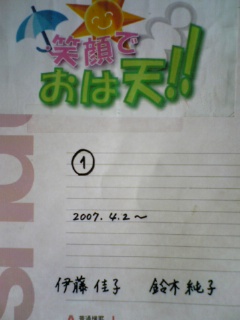 笑顔で
おは天!!
①
2007.4.2～
伊藤佳子 鈴木純子